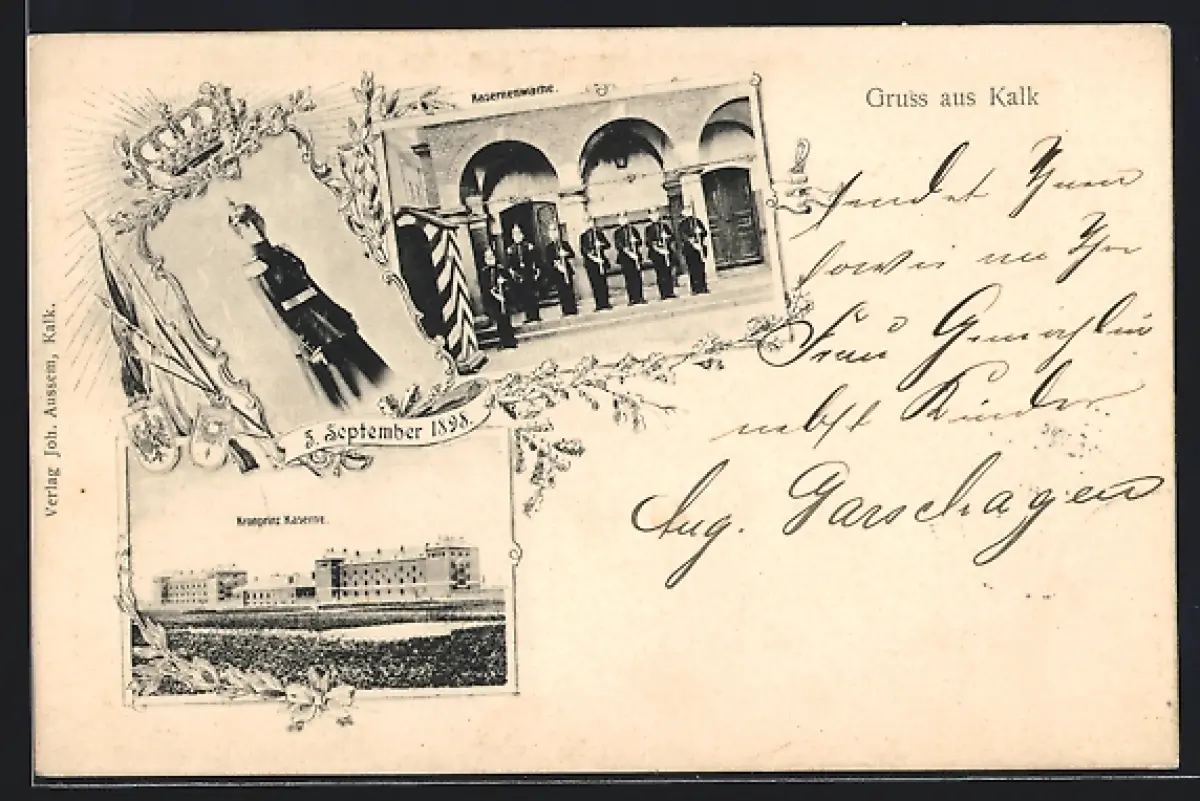 Gruss aus Kalk
Kasernenwache.
sendet Ihnen
sowie Ihr
Frau Gemahlin
nebst Kinder.
Aug. Garschagen
5. September 1898.
Kronprinz Kaserne.
Verlag Joh. Aussem, Kalk.